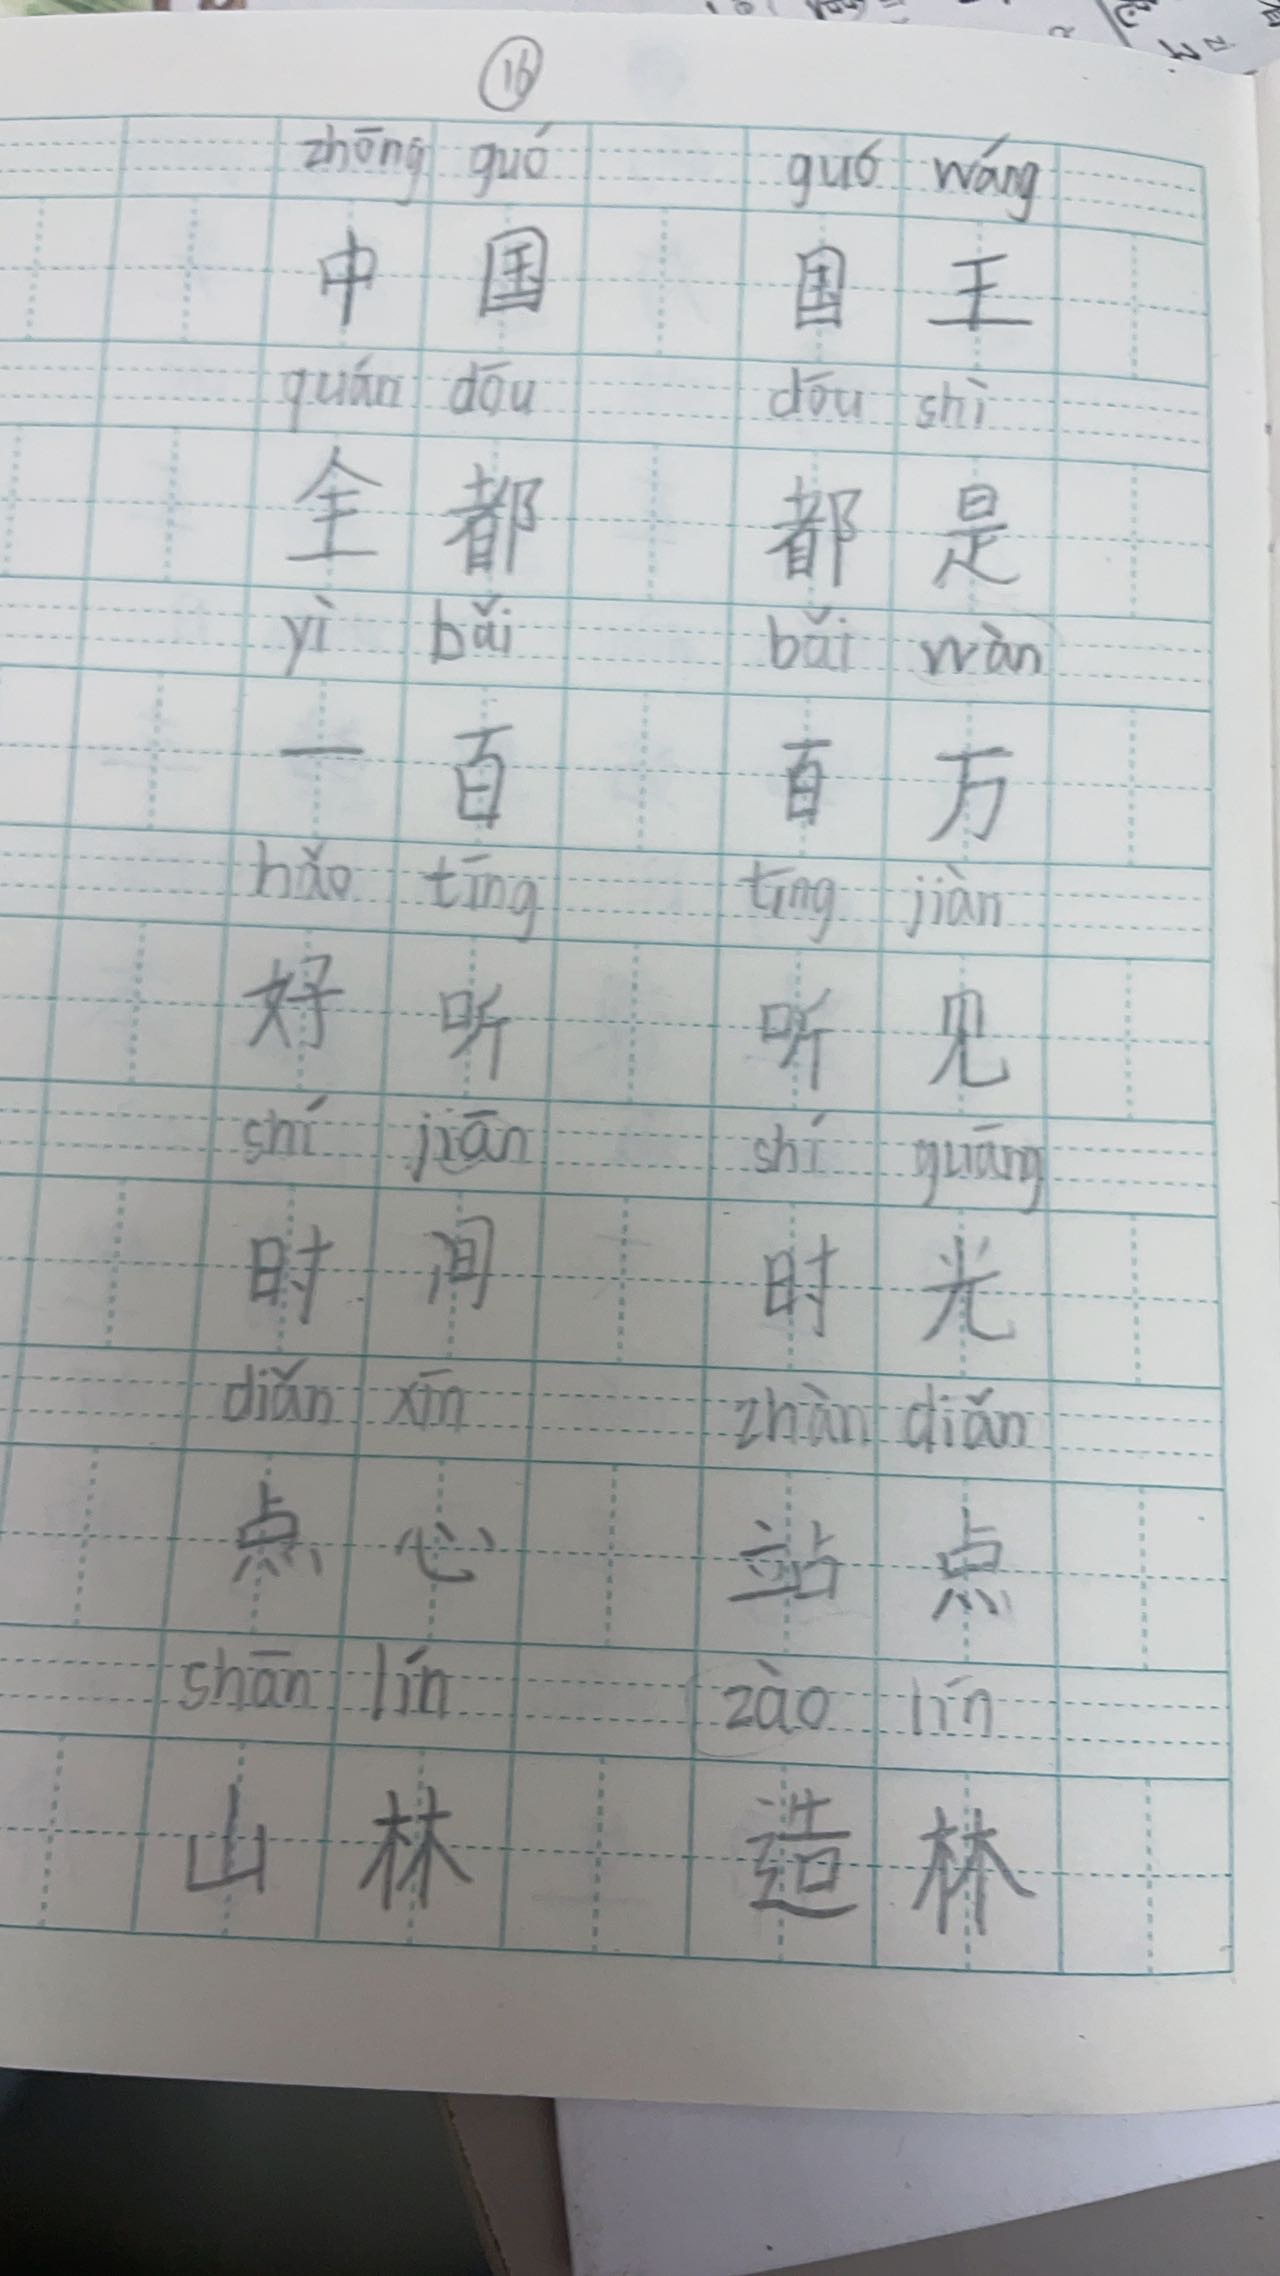 ⑯
zhōng guó guó wáng
中国 国王
quán dōu dōu shì
全都 都是
yì bǎi bǎi wàn
一百 百万
hǎo tīng tīng jiàn
好听 听见
shí jiān shí guāng
时间 时光
diǎn xīn zhàn diǎn
点心 站点
shān lín zào lín
山林 造林